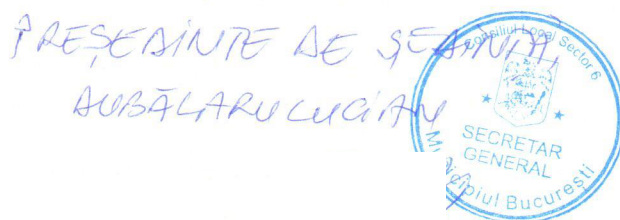 PREȘEDINTE DE ȘEDINȚĂ,
DUBĂLARU LUCIAN
Consiliul Local Sector 6
SECRETAR
GENERAL
Municipiul București